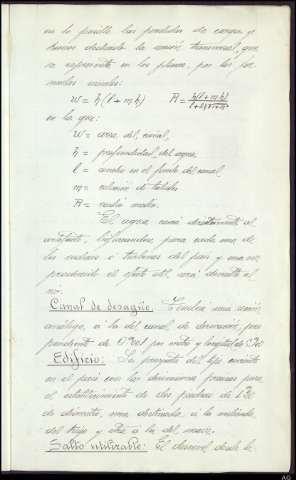 en lo posible las perdidas de carga y
hemos deducido la sección transversal, que
se representa en los planos, por las for-
mulas usuales:
W = h (l + m h) R = h(l+mh) / l+2h√1+m²
en la que:
W = area del canal,
h = profundidad del agua
l = ancho en el fondo del canal
m = relación de taludes
R = radio medio.
El agua, caerá directamente al
artefacto, bifurcandose para cada una de
los rodetes ó turbinas del país y una vez
producido el efecto util, será devuelta al
río.
Canal de desagüe: Tendrá una sección
análoga, a la del canal de derivación, por
pendiente de 0,001 por metro y longitud de
Edificio: La proyecta del tipo corriente
en el país con las dimensiones precisas para
el establecimiento de dos piedras de 1,30
de diámetro, una destinada, á la molienda
del trigo y otra á la del maiz.
Salto utilizable: El desnivel desde la